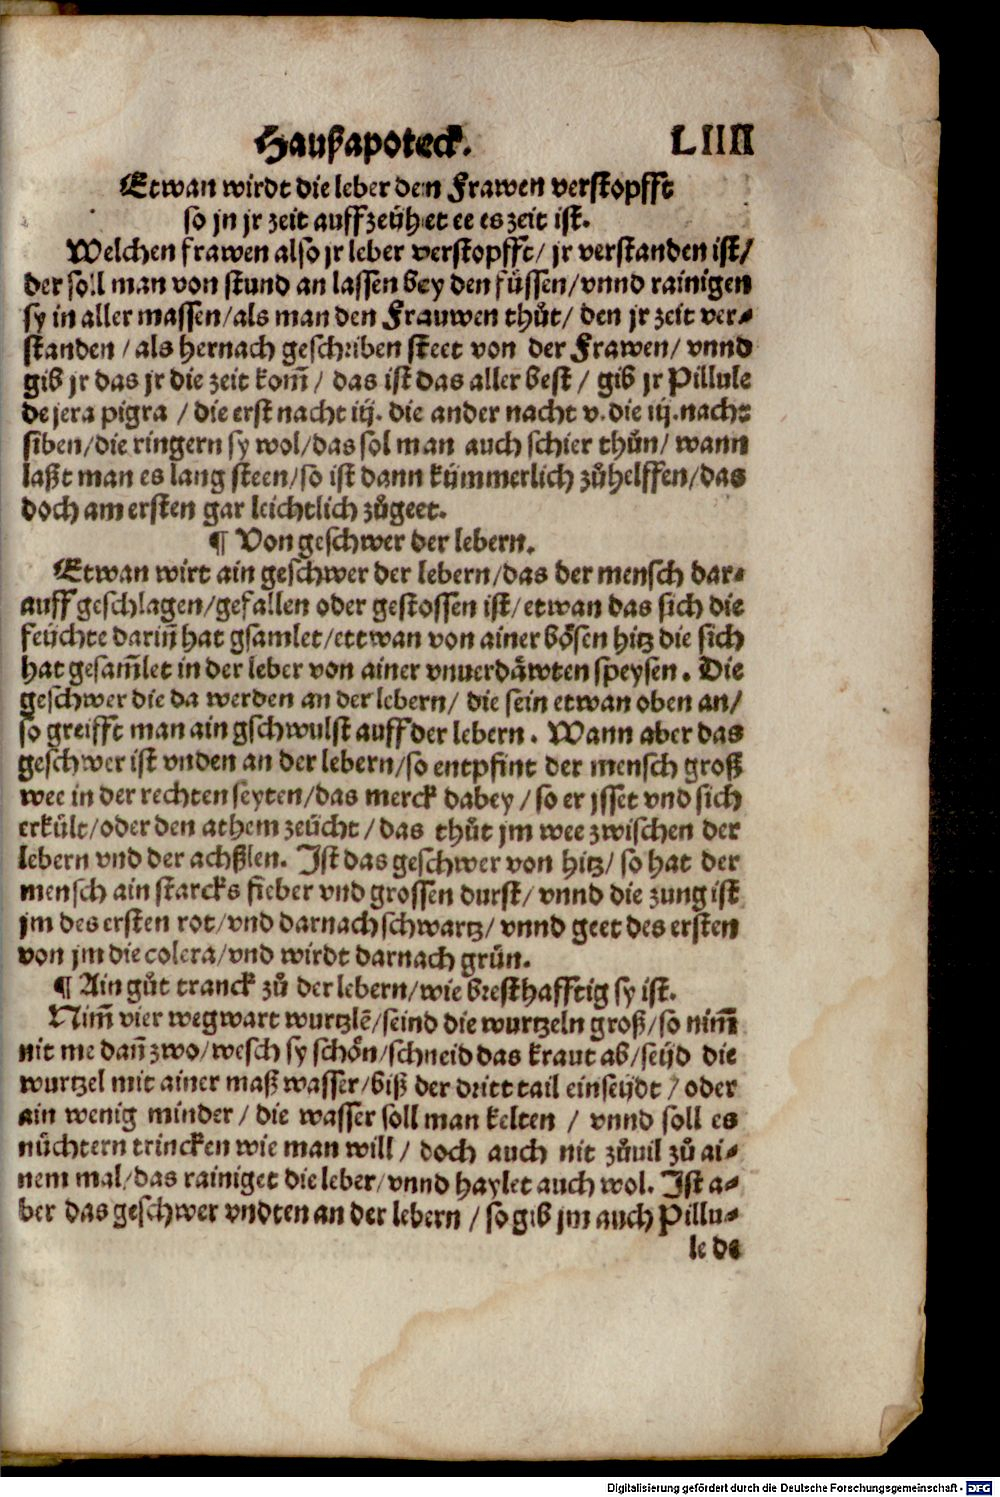 Haußapoteck. LIIII
Etwan wirdt die leber den Frawen verstopfft
so jn jr zeit auffzeühet ee es zeit ist.
Welchen frawen also jr leber verstopfft/ jr verstanden ist/
der soll man von stund an lassen bey den füssen/vnnd rainigen
sy in aller massen/als man den Frauwen thůt/ den jr zeit ver⸗
standen /als hernach geschriben steet von der Frawen/ vnnd
gib jr das jr die zeit kom̃/ das ist das aller best/ gib jr Pillule
de jera pigra /die erst nacht iij. die ander nacht v. die iij.nacht
siben/die ringern sy wol/das sol man auch schier thůn/ wann
laßt man es lang steen/so ist dann kümmerlich zůhelffen/das
doch am ersten gar leichtlich zůgeet.
¶ Von geschwer der lebern.
Etwan wirt ain geschwer der lebern/das der mensch dar⸗
auff geschlagen/gefallen oder gestossen ist/etwan das sich die
feüchte dariñ hat gsamlet/ettwan von ainer bösen hitz die sich
hat gesam̃let in der leber von ainer vnuerdäwten speysen. Die
geschwer die da werden an der lebern/ die sein etwan oben an/
so greifft man ain gschwulst auff der lebern. Wann aber das
geschwer ist vnden an der lebern/so entpfint der mensch groß
wee in der rechten seyten/das merck dabey/so er jsset vnd sich
erkült/oder den athem zeücht/das thůt jm wee zwischen der
lebern vnd der achßlen. Ist das geschwer von hitz/ so hat der
mensch ain starcks fieber vnd grossen durst/ vnnd die zung ist
jm des ersten rot/vnd darnach schwartz/ vnnd geet des ersten
von jm die colera/vnd wirdt darnach grün.
¶ Ain gůt tranck zů der lebern/wie bresthafftig sy ist.
Nim̃ vier wegwart wurtzlē/seind die wurtzeln groß/so nim̃
nit me dañ zwo/wesch sy schön/schneid das kraut ab/seüd die
wurtzel mit ainer maß wasser/biß der dritt tail einseüdt/oder
ain wenig minder/ die wasser soll man kelten / vnnd soll es
nüchtern trincken wie man will/ doch auch nit zůuil zů ai⸗
nem mal/das rainiget die leber/vnnd haylet auch wol. Ist a⸗
ber das geschwer vndten an der lebern /so gib jm auch Pillu⸗
le de
Digitalisierung gefördert durch die Deutsche Forschungsgemeinschaft - DFG